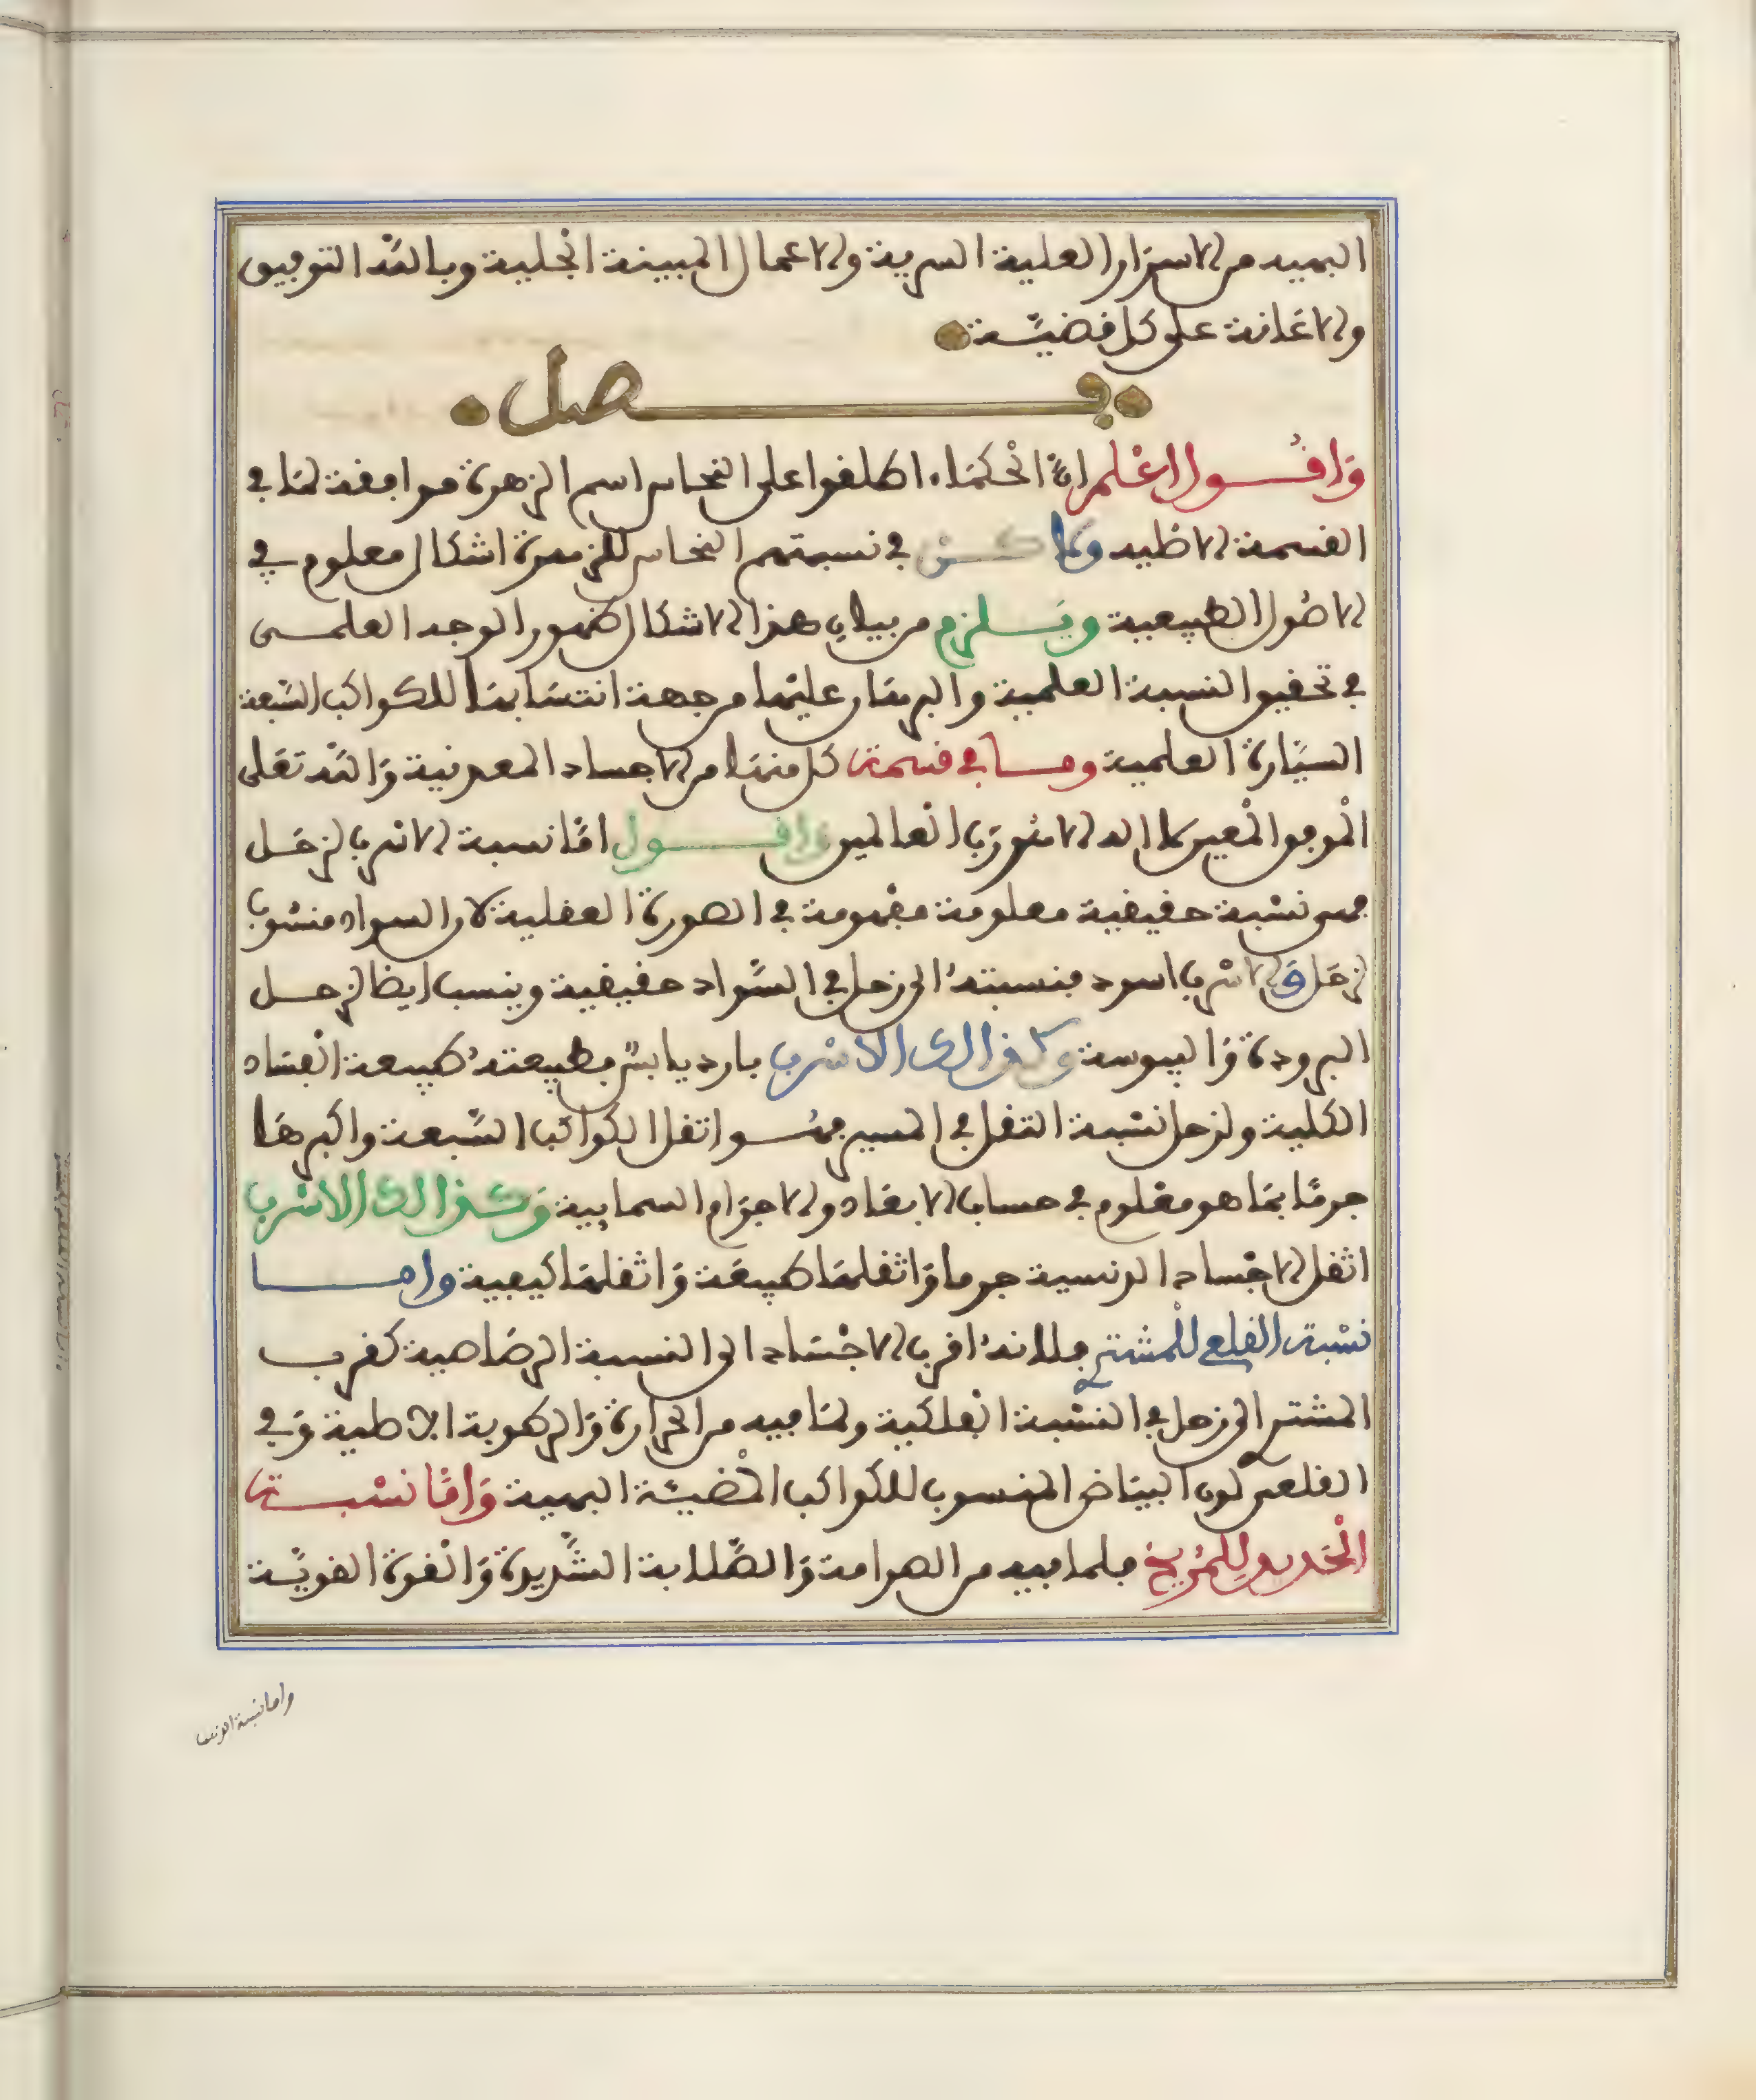 البهية من الاسرار العلية السرية والاعمال المبينة الجلية وبالله التوفيق
والاعانة على كل قضيّة
فصل
وَاقول اعْلم انّ الحكمَاء اطلقوا على النحاس اسم الزهرة موافقة لمَا في
القسمة الاصلية ولاكن في نسبتهم النحاس للزهرة اشكال معلوم في
الاصُول الطبيعية ويَلزم من بيان هذا الاشكال ظهور الوجه العلمى
في تحقيق النسبة العلمية والبرهَان عليهَا من جهة انتسَابهَا للكواكب السَّبعة
السيَّارة العلمية ومَا في قسمة كل منهَا من الاجساد المعدنية وَالله تعَلى
الموفق المعين لا اله الا هو رَب العالمين وَاقول امّا نسبة الاسرب لزحَل
فهى نسْبة حقيقية معلومة مفهومة في الصورة العقلية لان السواد منسُوب
لزحَل وَالاسْرب اسود فنسبتهُ الى زحل في السَّواد حقيقية وينسب ايضا لزحل
البرودة وَاليبوسة وكذالك الاسْرب بارد يابسٌ فطبيعتهُ طبيعة الفسَاد
الكلية ولزحل نسْبة الثقل في المسير فهُو اثقل الكواكب السَّبعة واكبرهَا
جرمًا بمَا هو معْلوم في حساب الابعَاد والاجرَام السماييه وَكذالك الاسْرب
اثقل الاجْساد الدنسية جرما وَاثقلهَا طبيعَة وَاثقلهَا كيفية وامـا
نسْبة القلعي للمشترى فلانهُ اقرب الاجْسَاد الى النسبة الرصَاصية كقرب
المشترى الى زحل في النسْبة الفلكية ولمَا فيه من الحرارة وَالرطوبة الاصلية وَفي
القلعى لون البيَاض المنسوب للكواكب المضيئة البهية وَامَّا نسْبـة
الحْديد لِلمريخ فلما فيه من الصرامة وَالصَّلابة الشَّديدة وَالقوة القويَّة
واما نسبة